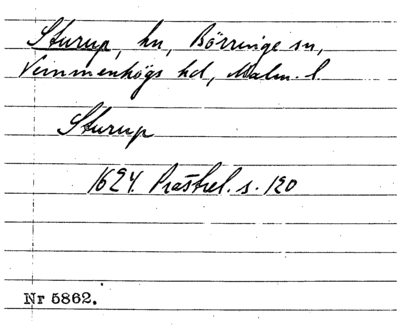 Sturup, hn, Börringe sn,
Vemmenhögs hd, Malm. l.
Sturup
1624. Prästrel. s. 120
Nr 5862.